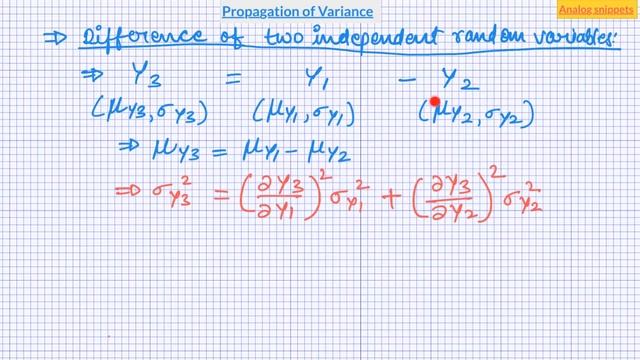 Propagation of Variance
Analog snippets
⇒ Difference of two independent random variables:
⇒ Y₃ = Y₁ - Y₂
(μY₃, σY₃) (μY₁, σY₁) (μY₂, σY₂)
⇒ μY₃ = μY₁ - μY₂
⇒ σ²Y₃ = (∂Y₃/∂Y₁)² σ²Y₁ + (∂Y₃/∂Y₂)² σ²Y₂